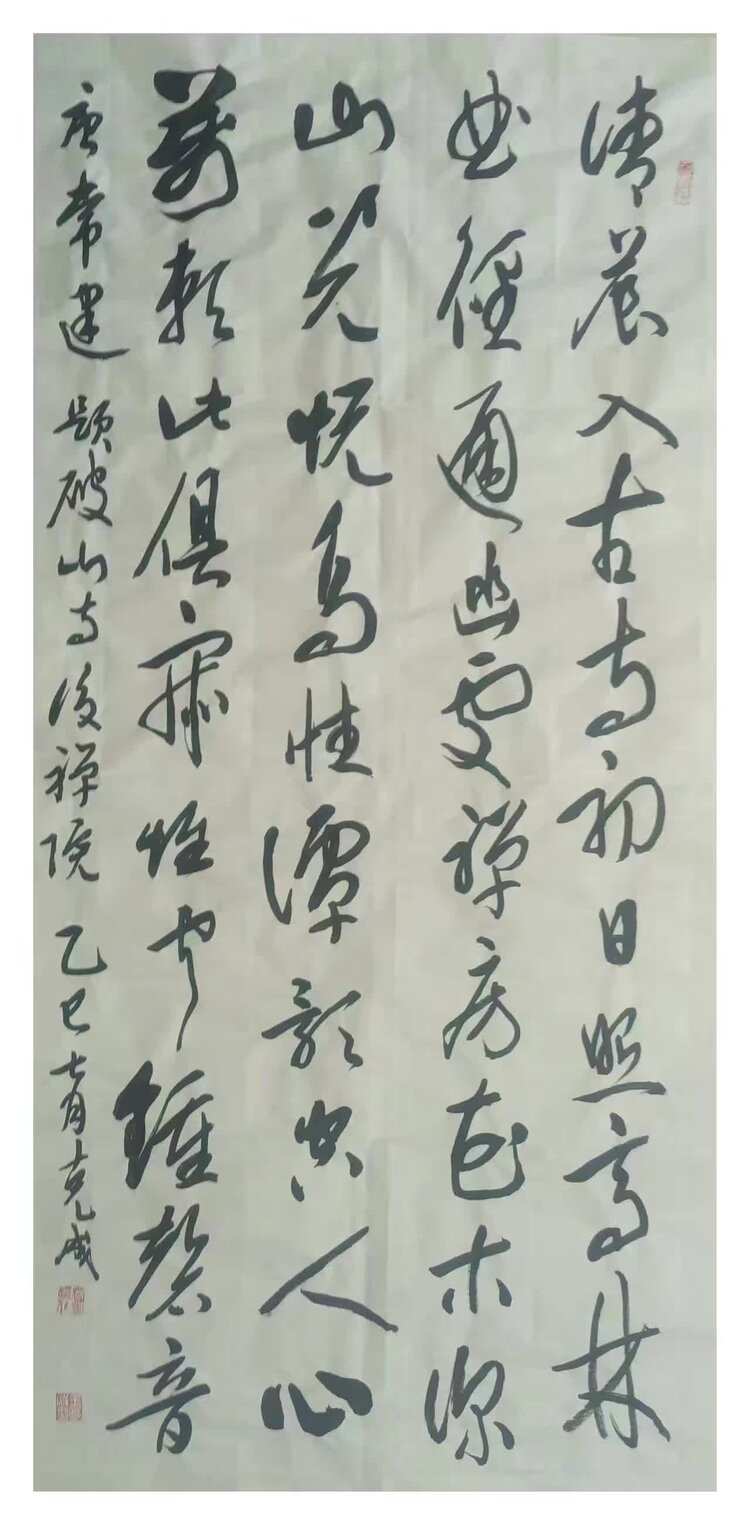 清晨入古寺初日照高林
曲徑通幽處禅房花木深
山光悦鳥性潭影空人心
萬籁此俱寂惟闻鍾磬音
唐常建 题破山寺後禅院 乙巳七月克成